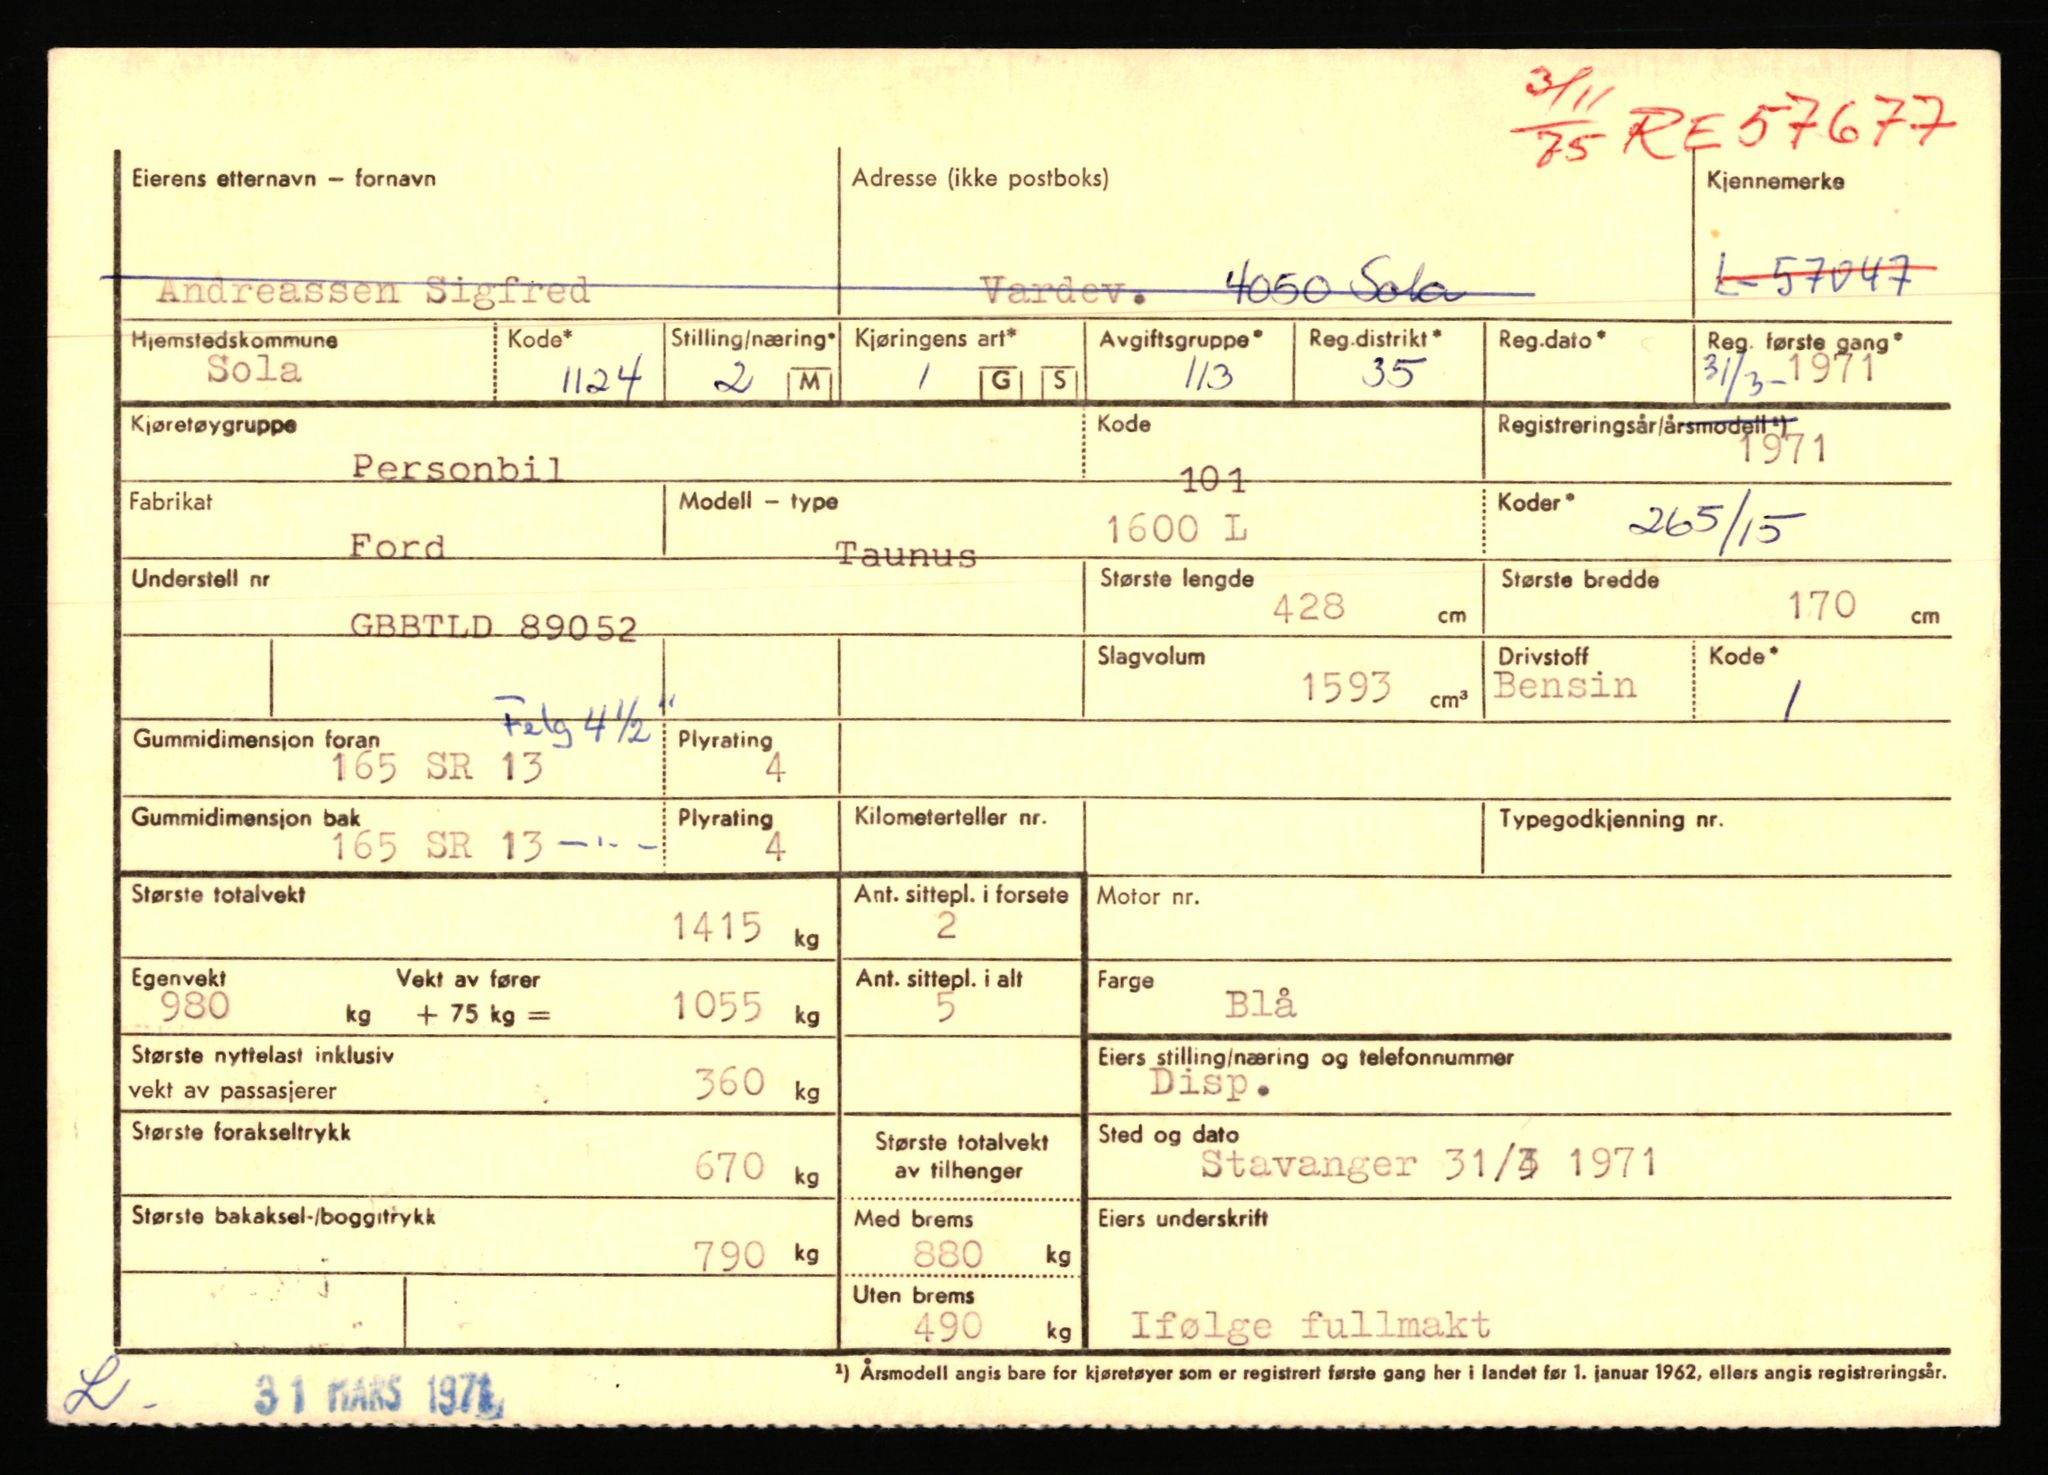 3/11
75 RE 57677
Eierens etternavn – fornavn
Adresse (ikke postboks)
Kjennemerke
Andreassen Sigfred
Vardev. 4050 Sola
L-57047
Hjemstedskommune
Kode*
Stilling/næring*
Kjøringens art*
Avgiftsgruppe*
Reg.distrikt*
Reg.dato*
Reg. første gang*
Sola
1124
2 M
1 G S
113
35
31/3-1971
Kjøretøygruppe
Kode
Registreringsår/årsmodell ¹)
Personbil
101
1971
Fabrikat
Modell – type
Koder*
Ford
Taunus
1600 L
265/15
Understell nr
Største lengde
Største bredde
GBBTLD 89052
428 cm
170 cm
Slagvolum
Drivstoff
Kode*
1593 cm³
Bensin
1
Felg 4 1/2"
Gummidimensjon foran
Plyrating
165 SR 13
4
Gummidimensjon bak
Plyrating
Kilometerteller nr.
Typegodkjenning nr.
165 SR 13 -"-
4
Største totalvekt
Ant. sittepl. i forsete
Motor nr.
1415 kg
2
Egenvekt
Vekt av fører
Ant. sittepl. i alt
Farge
980 kg + 75 kg = 1055 kg
5
Blå
Største nyttelast inklusiv
vekt av passasjerer
360 kg
Eiers stilling/næring og telefonnummer
Disp.
Største forakseltrykk
670 kg
Største totalvekt
av tilhenger
Sted og dato
Stavanger 31/3 1971
Største bakaksel-/boggitrykk
790 kg
Med brems
880 kg
Eiers underskrift
Uten brems
490 kg
Ifølge fullmakt
¹) Årsmodell angis bare for kjøretøyer som er registrert første gang her i landet før 1. januar 1962, ellers angis registreringsår.
L -
31 MARS 1971